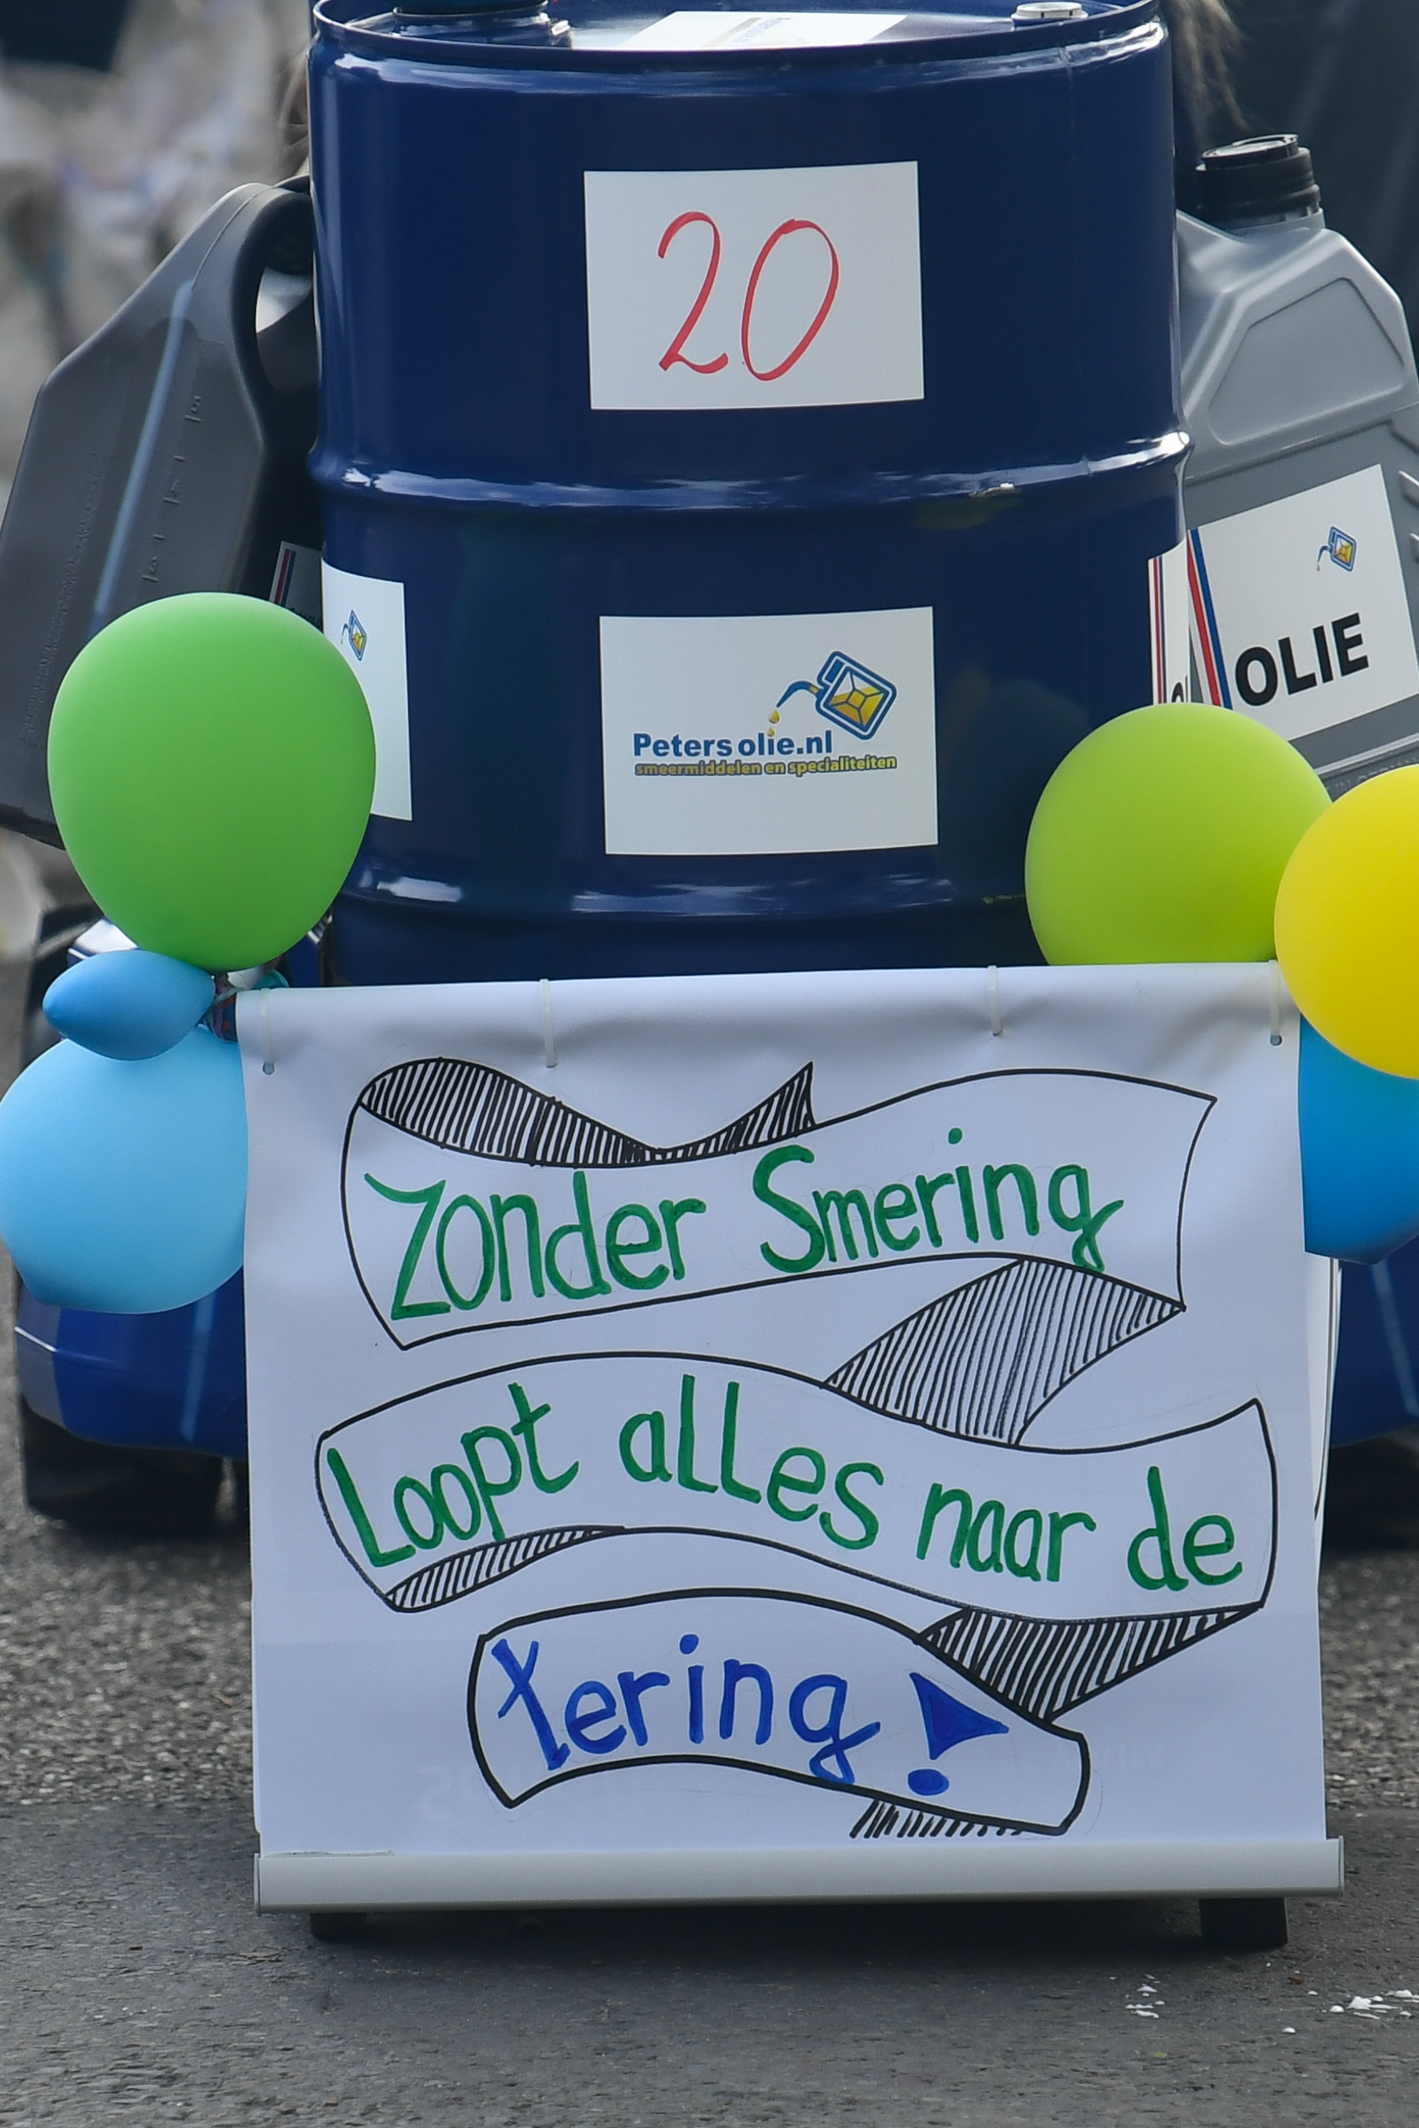 20
Petersolie.nl
smeermiddelen en specialiteiten
OLIE
Zonder Smering
Loopt alles naar de
tering!